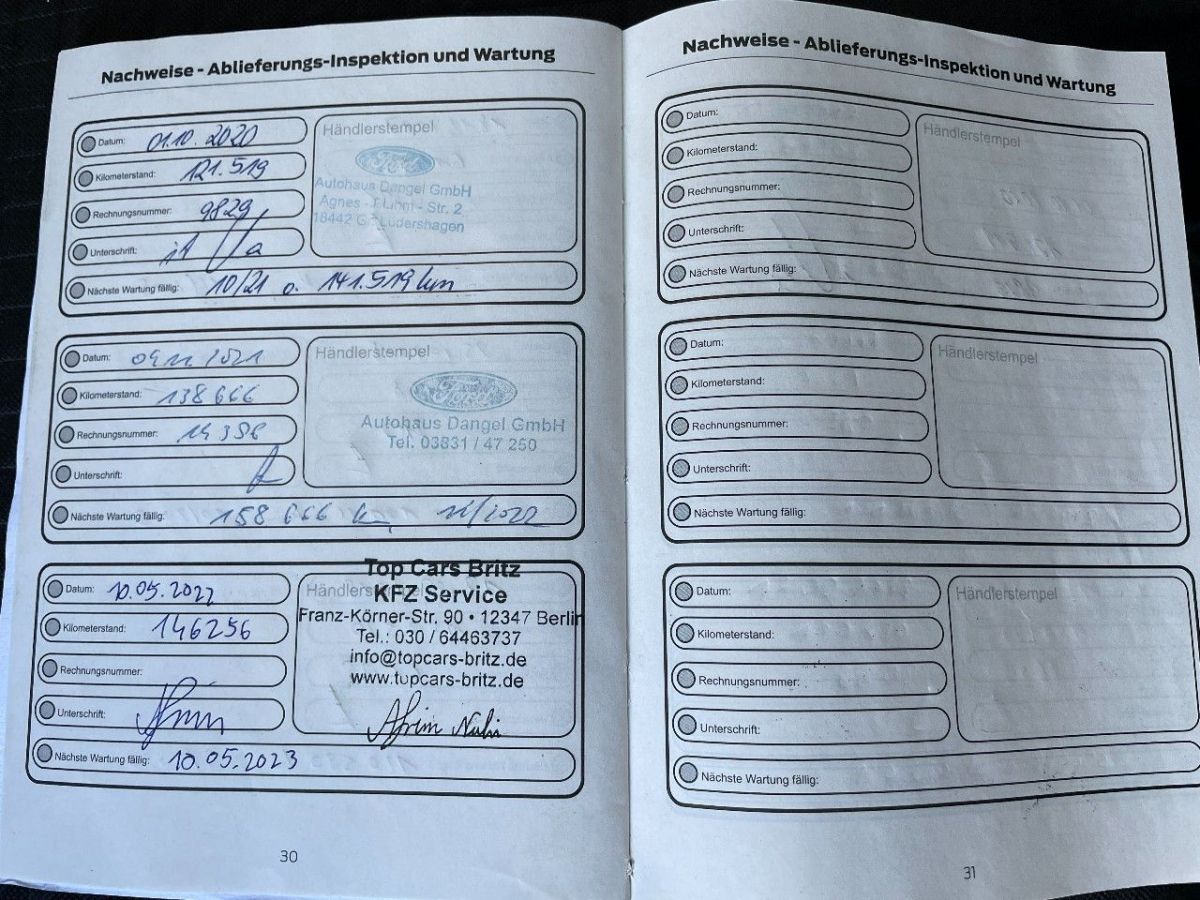 Nachweise - Ablieferungs-Inspektion und Wartung
Datum: 01.10.2020
Kilometerstand: 121.519
Rechnungsnummer: 9829
Unterschrift:
Nächste Wartung fällig: 10/21 o. 141.519 km
Händlerstempel
Ford
Autohaus Dangel GmbH
Agnes - - Str. 2
18442 Lüdershagen
Datum:
Kilometerstand: 138 666
Rechnungsnummer:
Unterschrift:
Nächste Wartung fällig: 158 666 km 11/2022
Händlerstempel
Ford
Autohaus Dangel GmbH
Tel. 03831 / 47 250
Datum: 10.05.2022
Kilometerstand: 146256
Rechnungsnummer:
Unterschrift:
Nächste Wartung fällig: 10.05.2023
Händlerstempel
Top Cars Britz
KFZ Service
Franz-Körner-Str. 90 • 12347 Berlin
Tel.: 030 / 64463737
info@topcars-britz.de
www.topcars-britz.de
30
Nachweise - Ablieferungs-Inspektion und Wartung
Datum:
Kilometerstand:
Rechnungsnummer:
Unterschrift:
Nächste Wartung fällig:
Händlerstempel
Datum:
Kilometerstand:
Rechnungsnummer:
Unterschrift:
Nächste Wartung fällig:
Händlerstempel
Datum:
Kilometerstand:
Rechnungsnummer:
Unterschrift:
Nächste Wartung fällig:
Händlerstempel
31